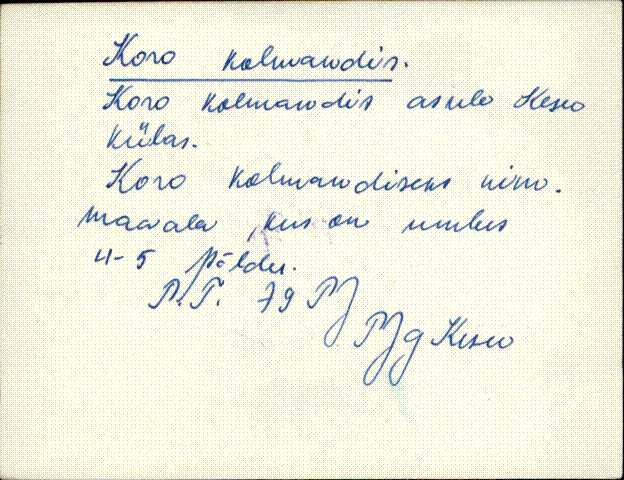 Koro kolmandis.
Koro kolmandis asub Kesu
külas.
Koro kolmandiseks nim.
maaala, kus on umbes
4-5 põldu.
P.T. 79
Kesu